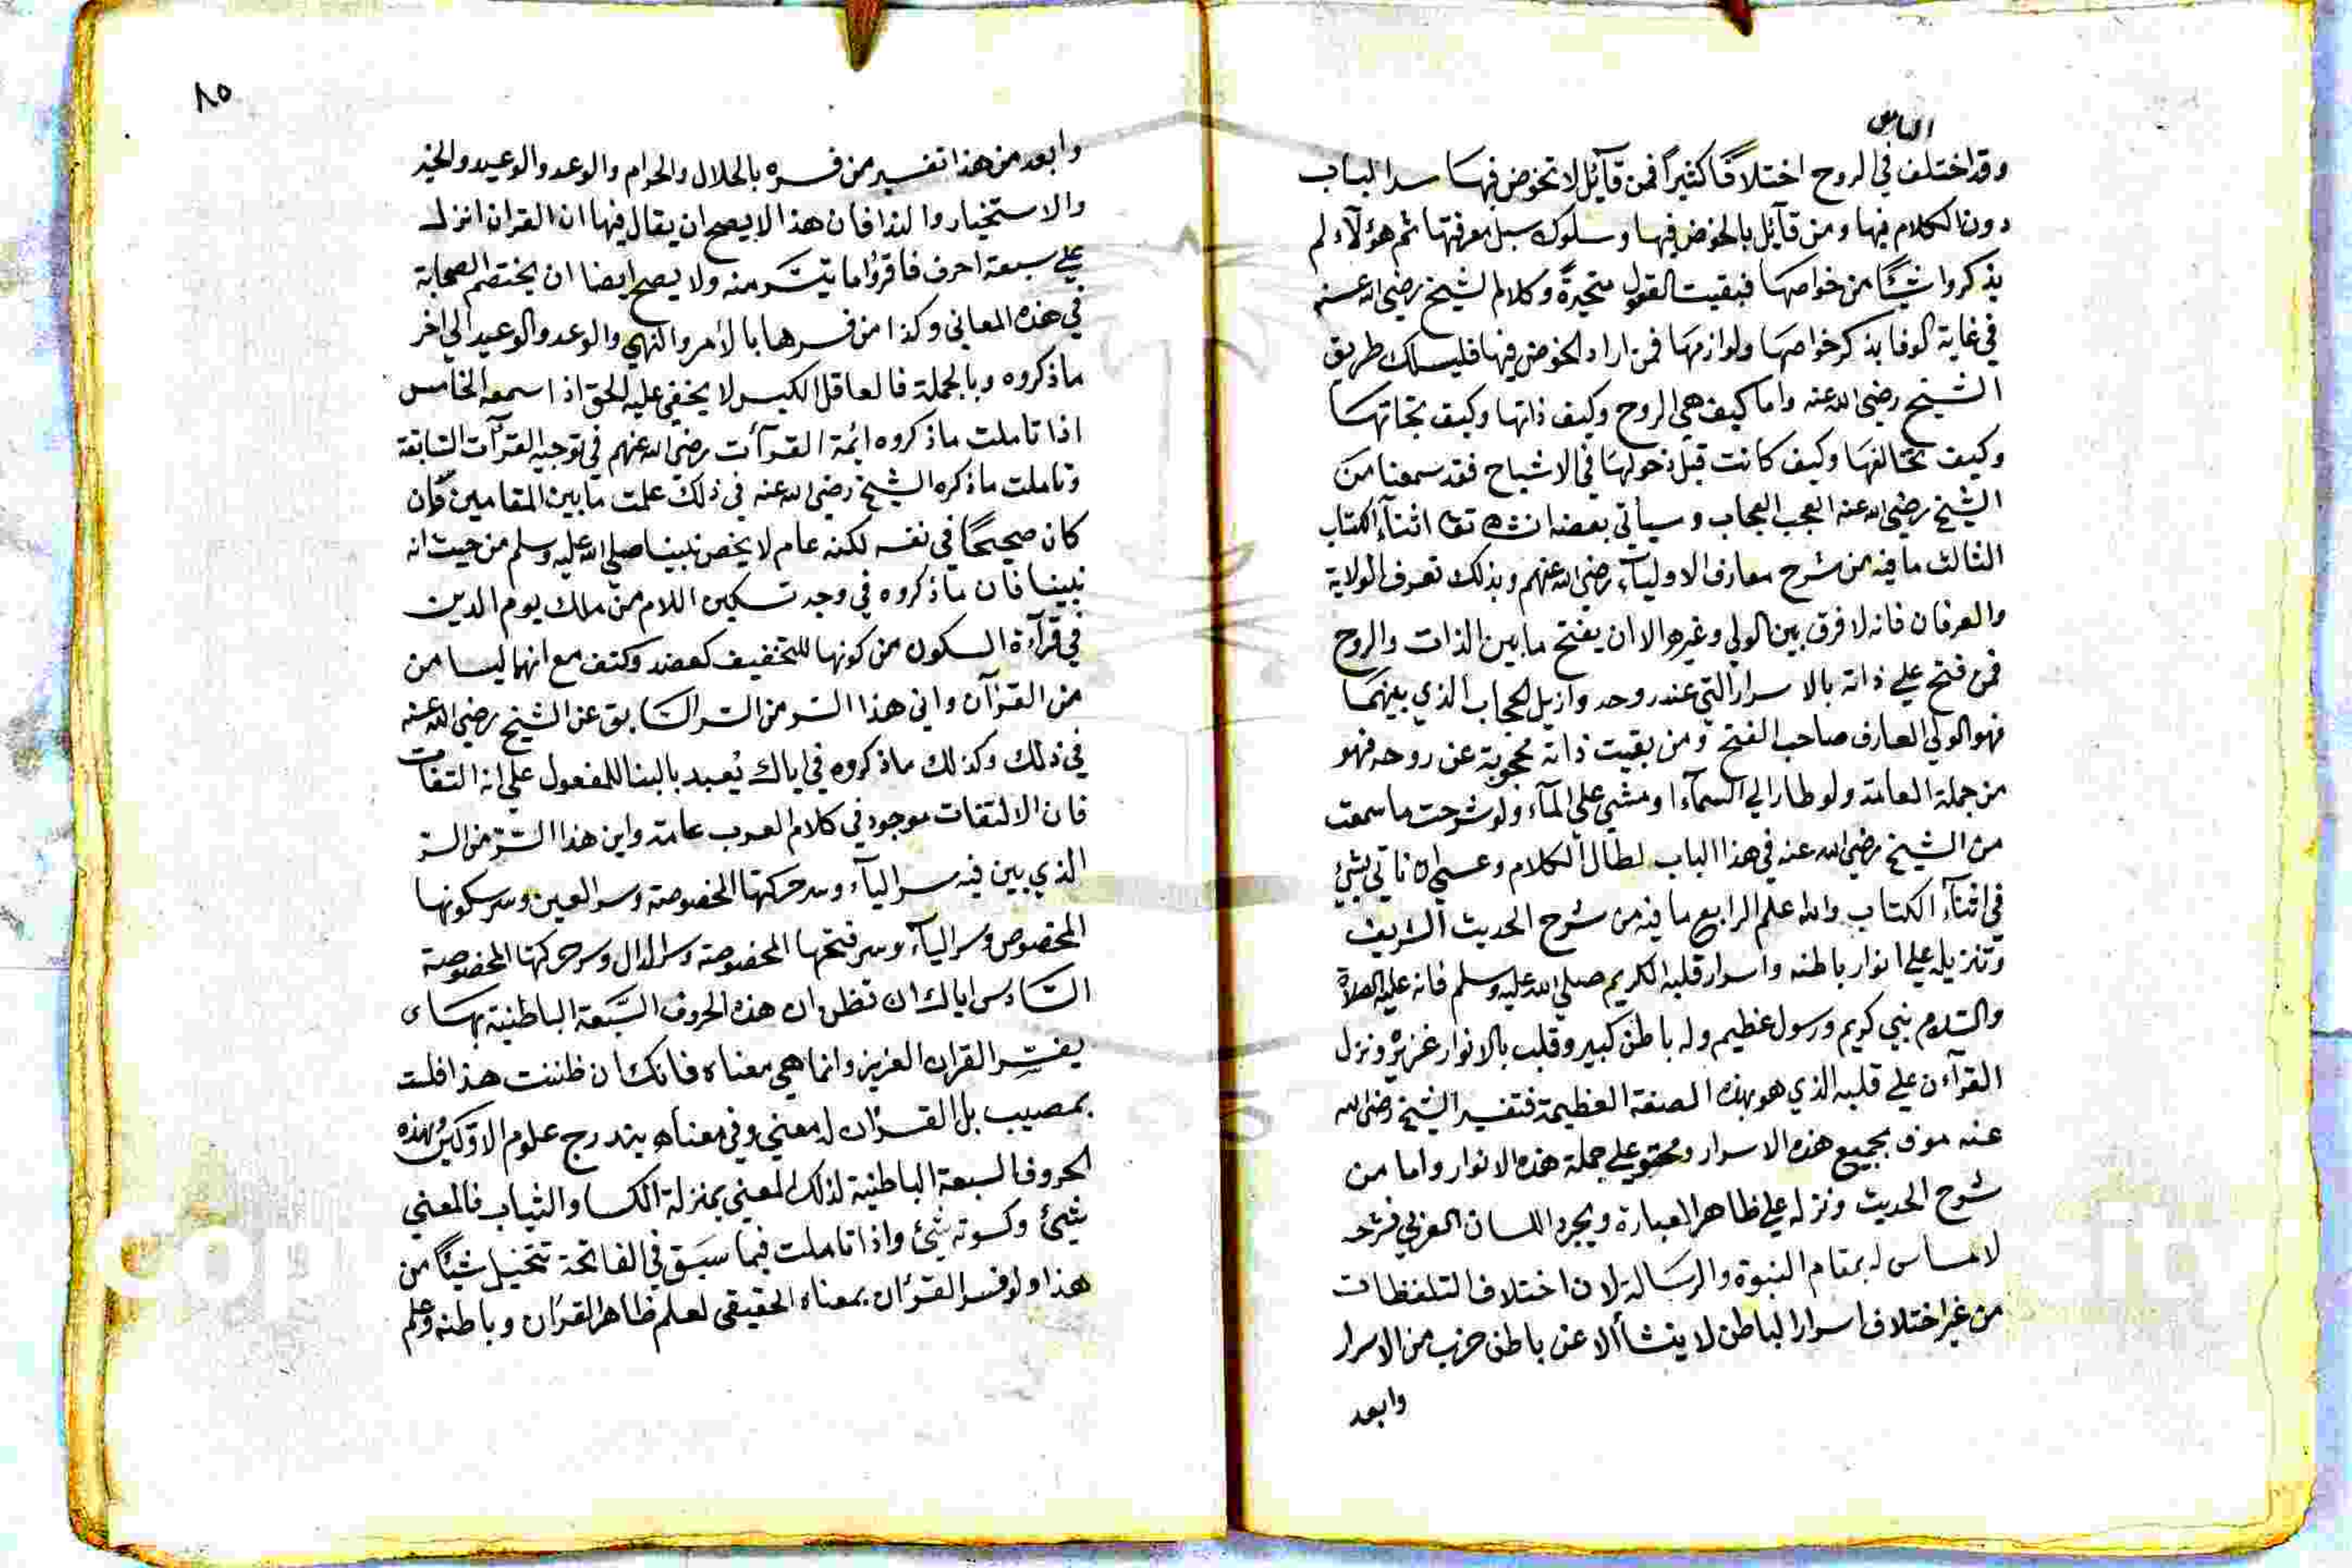 الناس
وقد اختلف في الروح اختلافا كثيرا فمن قائل لا تخوض فيها سدا لباب
دون الكلام فيها ومن قائل بالخوض فيها وسلوك سبل معرفتها ثم هؤلاء لم
يذكروا شيئا من خواصها فبقيت العقول متحيرة وكلام الشيخ رضي الله عنه
في غاية الوفا بذكر خواصها ولوازمها فمن اراد الخوض فيها فليسلك طريق
الشيخ رضي الله عنه واما كيف هي الروح وكيف ذاتها وكيف
وكيف تخالفها وكيف كانت قبل دخولها في الاشباح فقد سمعنا من
الشيخ رضي الله عنه العجب العجاب وسيأتي بعضه ان شاء الله تعا اثناء الكتاب
الثالث ما فيه من شرح معارف الاولياء رضي الله عنهم وبذلك تعرف الولاية
والعرفان فانه لا فرق بين الولي وغيره الا ان يفتح ما بين الذات والروح
فمن فتح علي ذاته بالاسرار التي عند روحه وازيل الحجاب الذي بينهما
فهو الولي العارف صاحب الفتح ومن بقيت ذاته محجوبة عن روحه فهو
من جملة العامة ولو طار الي السماء او مشي علي الماء ولو شرحت ما سمعت
من الشيخ رضي الله عنه في هذا الباب لطال الكلام وعسي ان ناتي بشئ
في اثناء الكتاب والله اعلم الرابع ما فيه من شرح الحديث الشريف
وتنزيله علي انوار باطنه واسرار قلبه الكريم صلي الله عليه وسلم فانه عليه الصلاة
والسلام نبي كريم ورسول عظيم وله باطن كبير وقلب بالانوار غزير ونزل
القرآن علي قلبه الذي هو بهذه الصفة العظيمة فتفسير الشيخ رضي الله
عنه موف بجميع هذه الاسرار ومحتو علي جملة هذه الانوار واما من
شرح الحديث ونزله علي ظاهر العبارة ومجرد اللسان العربي فشرحه
لا مساس له بمقام النبوة والرسالة لان اختلاف التلفظات
من غير اختلاف اسرار الباطن لا ينشأ الا عن باطن خرب من الاسرار
وابعد
٨٥
وابعد من هذا تفسير من فسره بالحلال والحرام والوعد والوعيد والخبر
والاستخبار والندا فان هذا لا يصح ان يقال فيها ان القران انزل
علي سبعة احرف فاقرؤا ما تيسر منه ولا يصح ايضا ان يختصم الصحابة
في هذه المعاني وكذا من فسرها بالأمر والنهي والوعد والوعيد الي اخر
ما ذكروه وبالجملة فالعاقل الكيس لا يخفي عليه الحق اذا سمعه الخامس
اذا تاملت ما ذكروه ائمة القرآت رضي الله عنهم في توجيه القرآت السابقة
وتاملت ما ذكره الشيخ رضي الله عنه في ذلك علمت ما بين المقامين فان
كان صحيحا في نفسه لكنه عام لا يخص نبينا صلي الله عليه وسلم من حيث انه
نبينا فان ما ذكروه في وجه تسكين اللام من ملك يوم الدين
في قرآءة السكون من كونها للتخفيف كعضد وكتف مع انهما ليسا من
من القرآن واني هذا السر من السر السابق عن الشيخ رضي الله عنه
في ذلك وكذلك ما ذكروه في اياك يُعبد بالبنا للمفعول علي انه التفات
فان الالتفات موجود في كلام العرب عامة واين هذا السر من السر
الذي بين فيه سر الياء وسر حركتها المخصوصة وسر العين وسر سكونها
المخصوص وسر الباء وسر فتحها المخصوصة وسر الدال وسر حركتها المخصوصة
السادس اياك ان تظن ان هذه الحروف السبعة الباطنية بها
يفسر القران العزيز وانما هي معناه فانك ان ظننت هذا فلست
بمصيب بل القرآن له معني وفي معناه يندرج علوم الاولين وهذه
الحروف السبعة الباطنية لذلك المعني بمنزلة الكسا والثياب فالمعني
شئ وكسوته شئ واذا تاملت فيما سبق في الفاتحة تتخيل شيئا من
هذا ولو فسر القرآن بمعناه الحقيقي لعلم ظاهر القرآن وباطنه وعلم